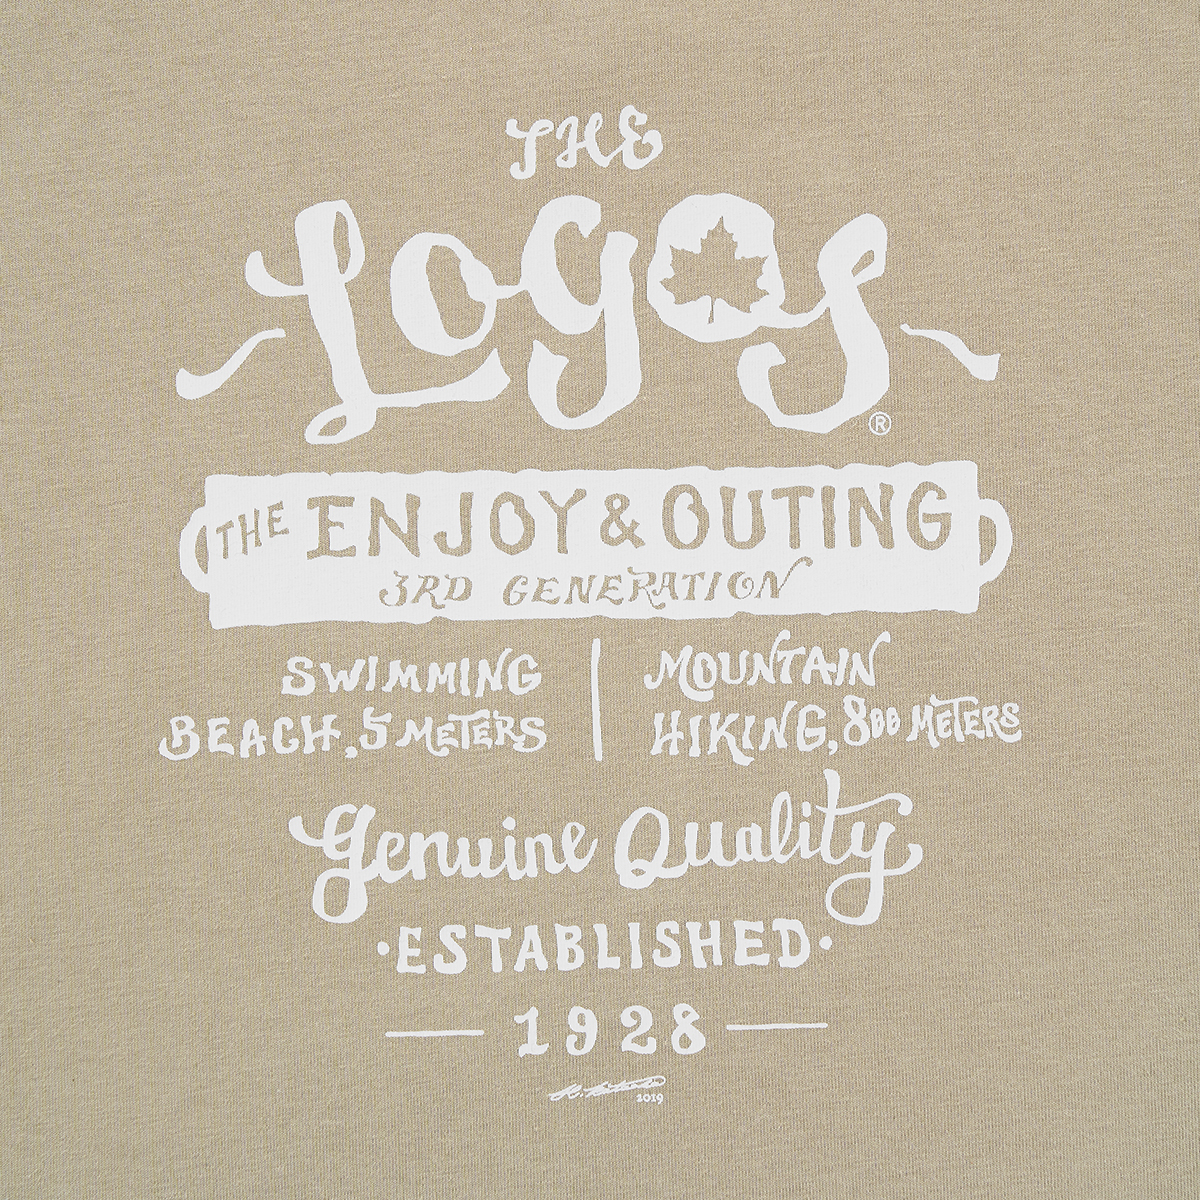 THE
LOGOS
®
THE ENJOY & OUTING
3RD GENERATION
SWIMMING
BEACH, 5 METERS
MOUNTAIN
HIKING, 800 METERS
Genuine Quality
·ESTABLISHED·
1928
2019